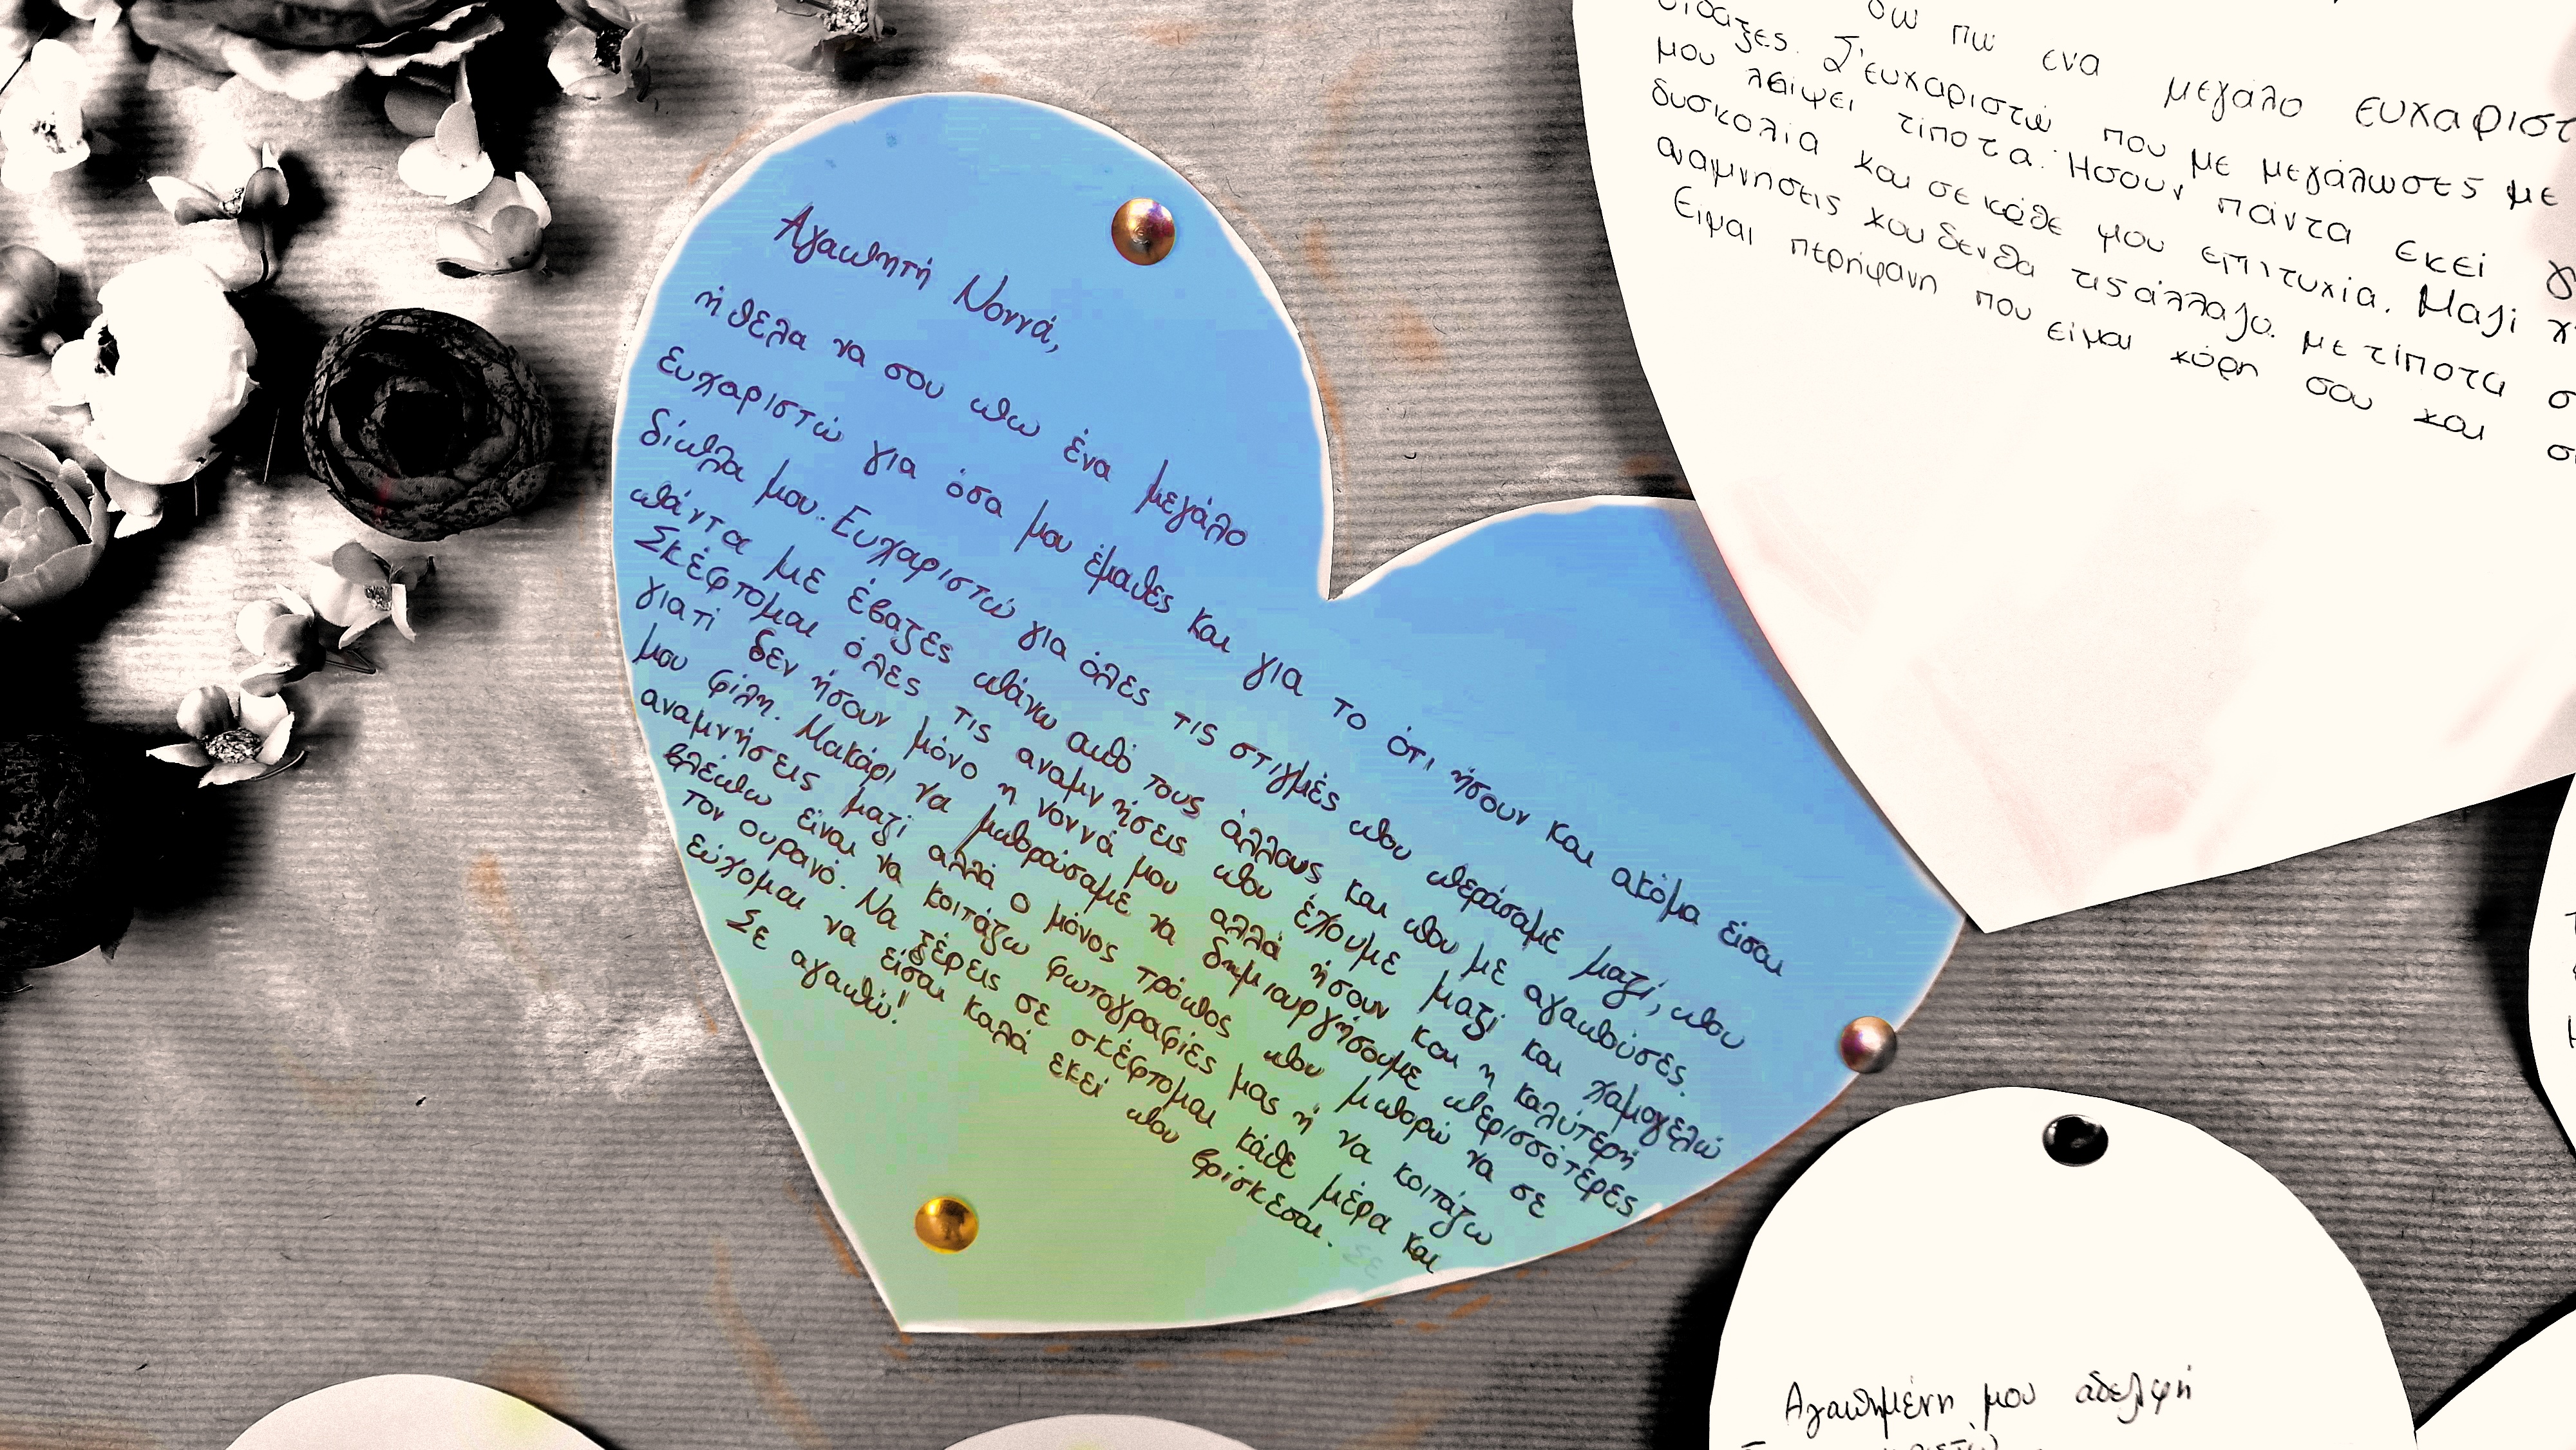 Αγαπητή Νοννά,
ή θελα να σου πω ένα μεγάλο
ευχαριστώ για όσα μου έμαθες και για το ότι ήσουν και ακόμα είσαι
δίπλα μου. Ευχαριστώ για όλες τις στιγμές που περάσαμε μαζί, που
πάντα με έβαζες πάνω από τους άλλους και που με αγαπούσες.
Σκέφτομαι όλες τις αναμνήσεις που έχουμε μαζί και χαμογελώ
γιατί δεν ήσουν μόνο η νοννά μου αλλά ήσουν και η καλύτερή
μου φίλη. Μακάρι να μπορούσαμε να δημιουργήσουμε περισσότερες
αναμνήσεις μαζί αλλά ο μόνος τρόπος που μπορώ να σε
βλέπω είναι να κοιτάζω φωτογραφίες μας ή να κοιτάζω
τον ουρανό. Να ξέρεις σε σκέφτομαι κάθε μέρα και
εύχομαι να είσαι καλά εκεί που βρίσκεσαι. Σε
Σε αγαπώ!
σω πω ενα μεγάλο ευχαριστ
διδαξες. Σ'ευχαριστώ που με μεγάλωσες με
μου λείψει τίποτα. Ήσουν πάντα εκεί
δυσκολία και σε κάθε μου επιτυχία. Μαζί
αναμνησεις που δεν θα τις άλλαζα. με τίποτα σ
Είμαι περήφανη που είμαι κόρη σου και σ
Αγαπημένη μου αδελφή